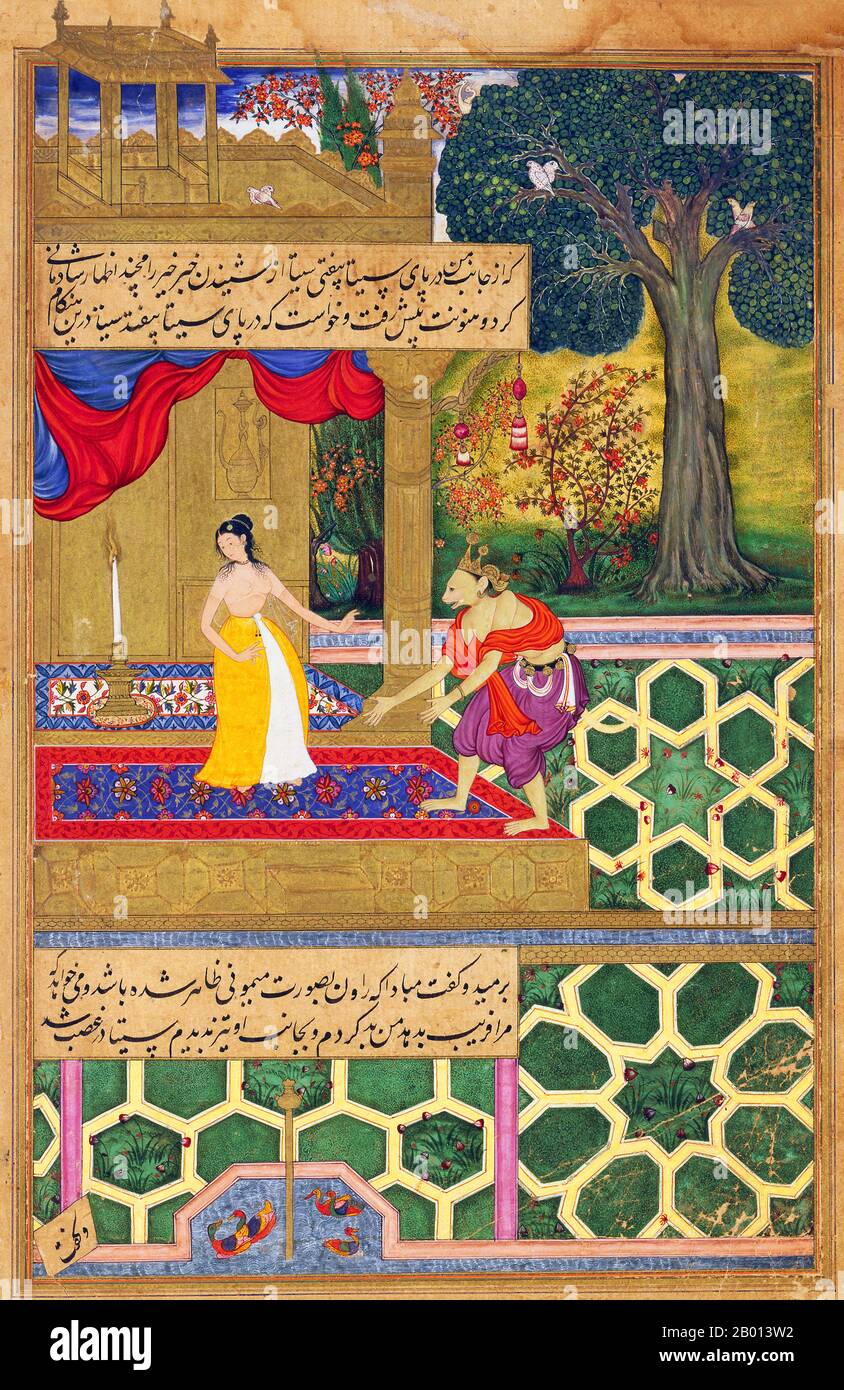 که از جانب من در پای سیتا بیفتی سیتا از شنیدن خبر خیر رامچند اظهار شادمانی
کرد و هنونت پیش رفت و خواست که در پای سیتا بیفتد سیتا درین هنگام
برمید و گفت مبادا که راون بصورت میمونی ظاهر شده باشد و می خواهد که
مرا فریب بدهد من بد کردم و بجانب او تیز ندیدم سیتا در غضب شد
alamy
Image ID: 2B013W2
www.alamy.com